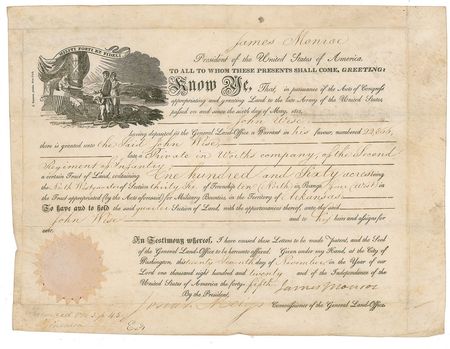 James Monroe
President of the United States of America,
TO ALL TO WHOM THESE PRESENTS SHALL COME, GREETING:
MILITI FORTI ET FIDELI
Know Ye, That, in pursuance of the Acts of Congress
appropriating and granting Land to the late Army of the United States,
passed on and since the sixth day of May, 1812,
John Wise,
having deposited in the General Land-Office a Warrant in his favour, numbered
there is granted unto the said John Wise,
late a Private in Company, of the Second
Regiment of Infantry
a certain Tract of Land, containing One hundred and Sixty acres, being
the quarter of Section thirty of Township ten (North) in Range four (West) in
the Tract appropriated (by the Acts aforesaid) for Military Bounties, in the Territory of Arkansas
To have and to hold the said quarter Section of Land, with the appurtenances thereof, unto the said
John Wise and to his heirs and assigns for
ever.
In Testimony whereof, I have caused these Letters to be made Patent, and the Seal
of the General Land-Office to be hereunto affixed. Given under my Hand, at the City of
Washington, this day of November in the Year of our
Lord one thousand eight hundred and twenty and of the Independence of the
United States of America the forty-fifth
James Monroe
By the President,
Commissioner of the General Land-Office.